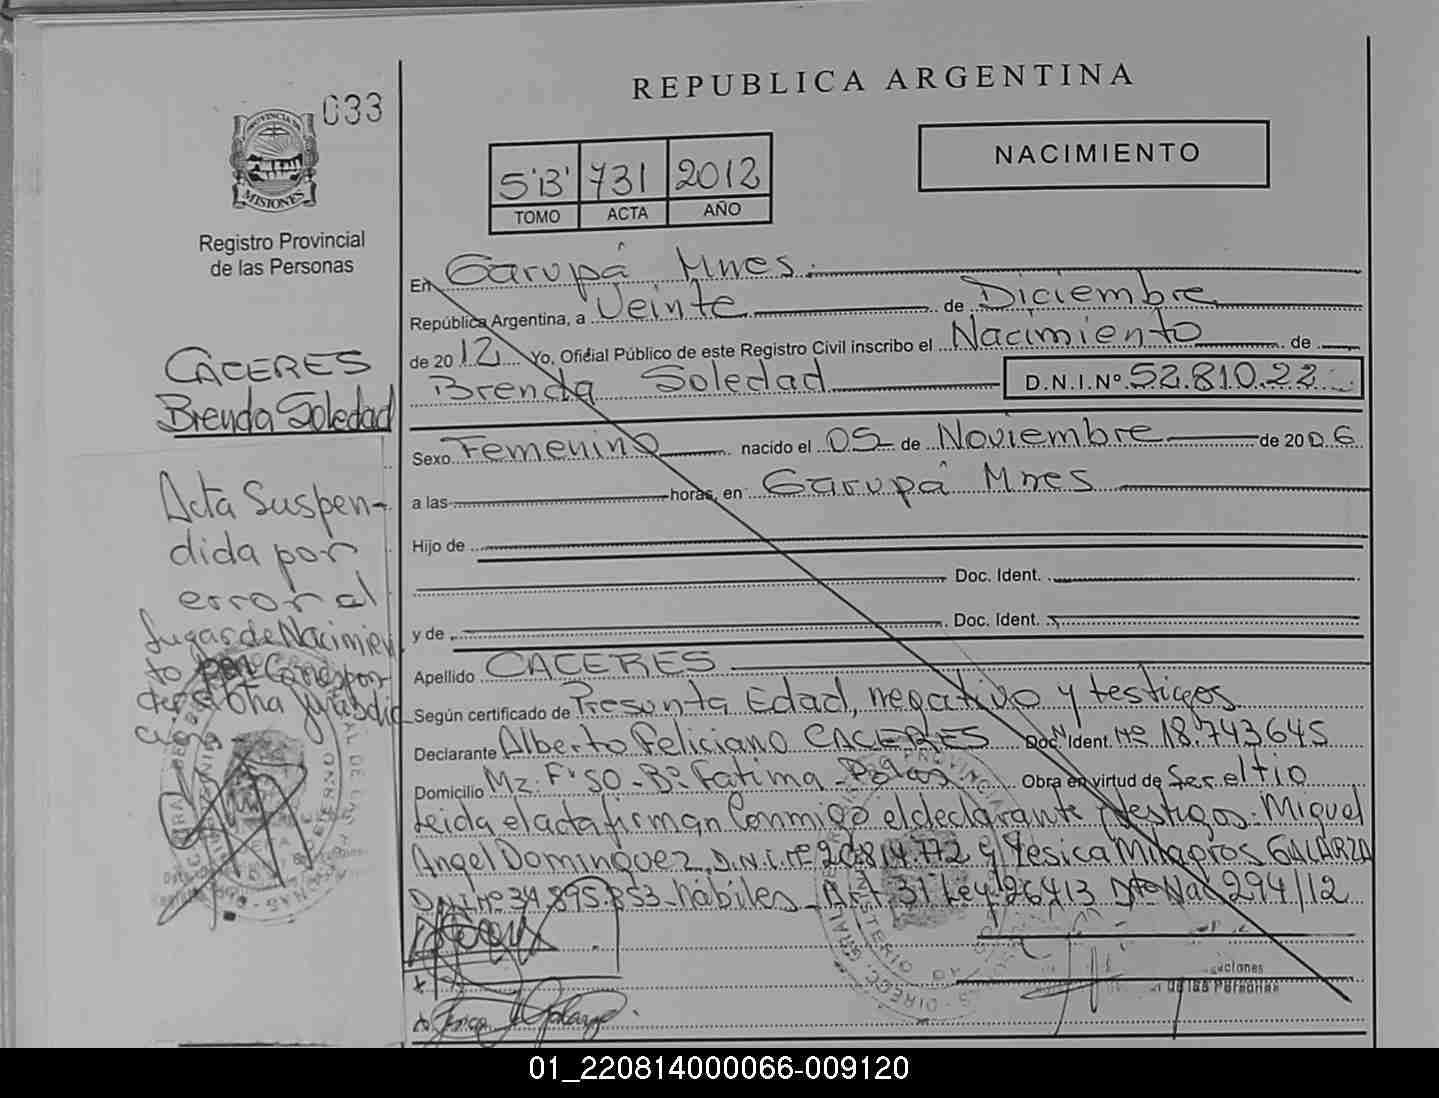 033
PROVINCIA DE
MISIONES
Registro Provincial
de las Personas
CACERES
Brenda Soledad
Acta Suspen-
dida por
error al
lugar de Nacimien
to por Correspon-
der a otra Jurisdic
REPUBLICA ARGENTINA
NACIMIENTO
5'B' 731 2012
TOMO ACTA AÑO
En Garupá Mnes.
República Argentina, a Veinte de Diciembre
de 2012 Yo, Oficial Público de este Registro Civil inscribo el Nacimiento de
Brenda Soledad D.N.I.Nº 52.810.22
Sexo Femenino nacido el 05 de Noviembre de 2006
a las horas, en Garupá Mnes
Hijo de
Doc. Ident.
y de Doc. Ident.
Apellido CACERES
Según certificado de Presunta Edad, negativo y testigos
Declarante Alberto Feliciano CACERES Doc. Ident. Nº 18.743645
Domicilio Mz. F' 50 - Bº Fatima - Pdas Obra en virtud de Ser el tio
Leida el acta firman Conmigo el declarante y testigos: Miguel
Angel Dominguez D.N.I. Nº 20.814.772 y Yesica Milagros GALARZA
D.N.I Nº 34.895.853 - hábiles - Art. 31 Ley 26413 Dto Nac 294/12
de las Personas
01_220814000066-009120